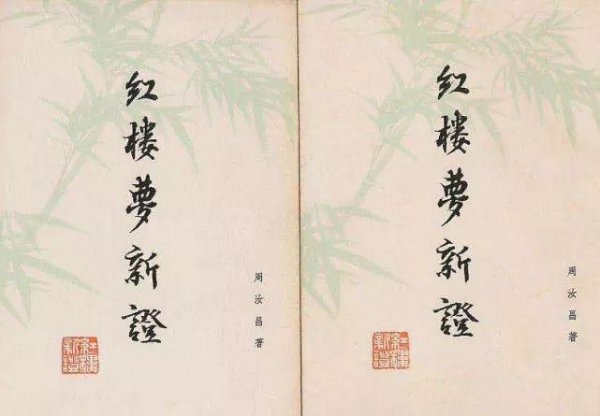 红楼梦新證
周汝昌著
红楼梦新證
周汝昌著